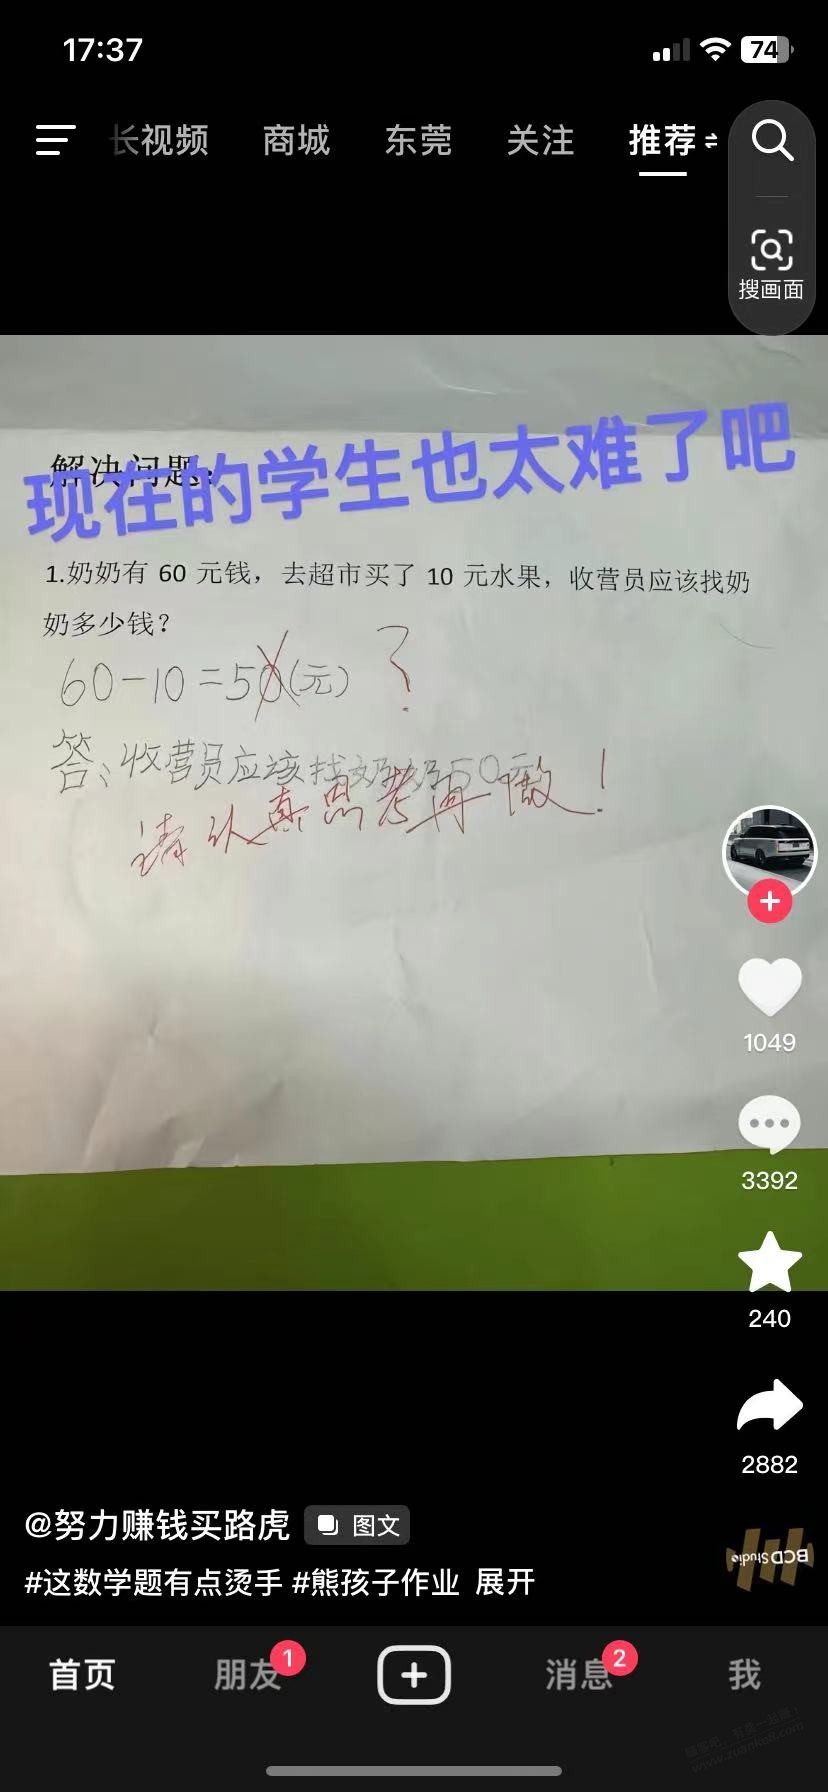 17:37
74
长视频 商城 东莞 关注 推荐
搜画面
解决问题:
现在的学生也太难了吧
1.奶奶有 60 元钱，去超市买了 10 元水果，收营员应该找奶
奶多少钱？
60-10=50(元) ?
答:收营员应该找奶奶50元
请认真思考再做!
1049
3392
240
2882
@努力赚钱买路虎 图文
BCD Studio
#这数学题有点烫手 #熊孩子作业 展开
首页 朋友 1 消息 2 我